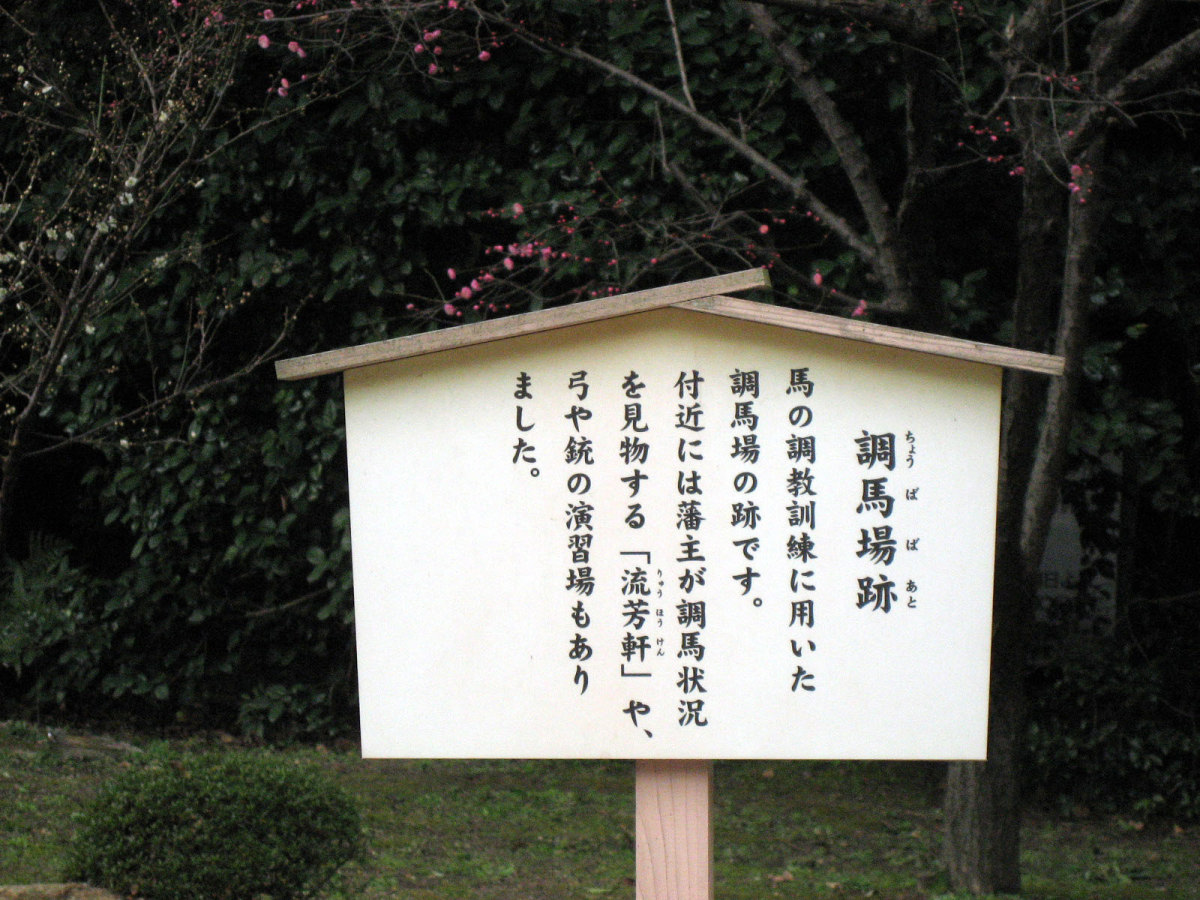 調馬場跡
ちょうばばあと
馬の調教訓練に用いた
調馬場の跡です。
付近には藩主が調馬状況
を見物する「流芳軒」や、
りゅうほうけん
弓や銃の演習場もあり
ました。